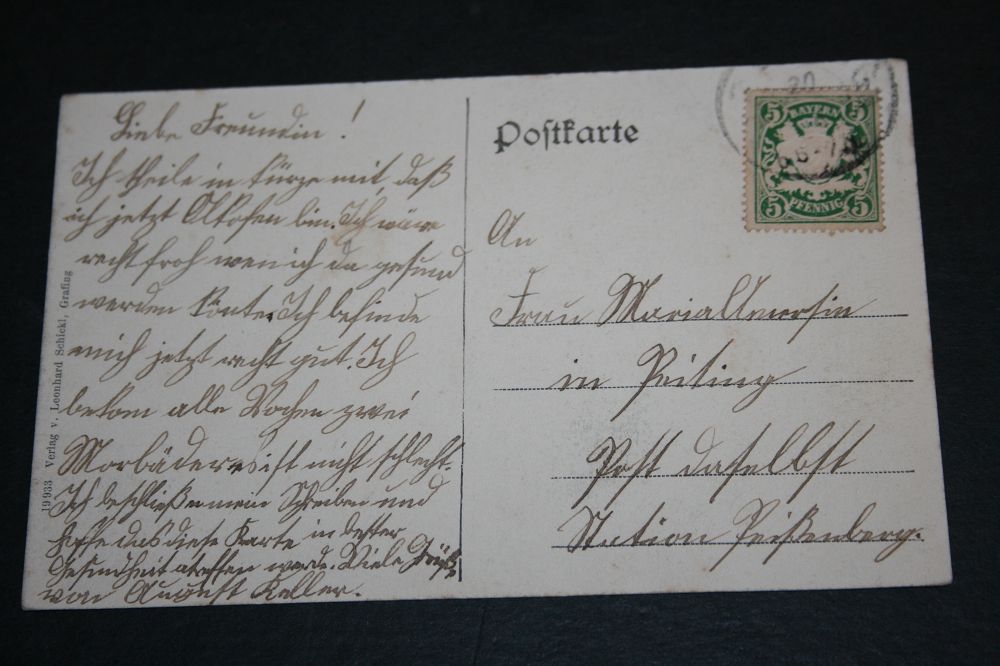 Liebe Freundin!
Ich theile in kürze mit, daß
ich jetzt Alkofen bin. Ich wäre
recht froh wen ich da gesund
werden könte. Ich befinde
mich jetzt recht gut. Ich
bekom alle Wochen zwei
Morbäder es ist nicht schlecht.
Ich beschließe mein Schreiben und
hoffe das diese Karte in bester
Gesundheit atreffen werde. Viele Grüße
von August Keller.
19933 Verlag v. Leonhard Schickl, Grafing
Postkarte
5 BAYERN 5
5 PFENNIG 5
An
Frau Maria
in Peiting
Post daselbst
Station Peißenberg.